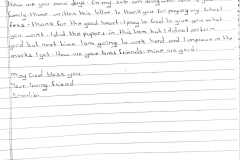 How are you now days. On my side am doing well
family there. written this letter to thank you for paying my school
fees. thanks for the good heart. I pray to God to give you what
you want. I did the papers in this term but I did not perform
good but next time I am going to work hard and I improve in the
marks I got. How are your best friends. mine are good.
May God bless you
Your loving friend